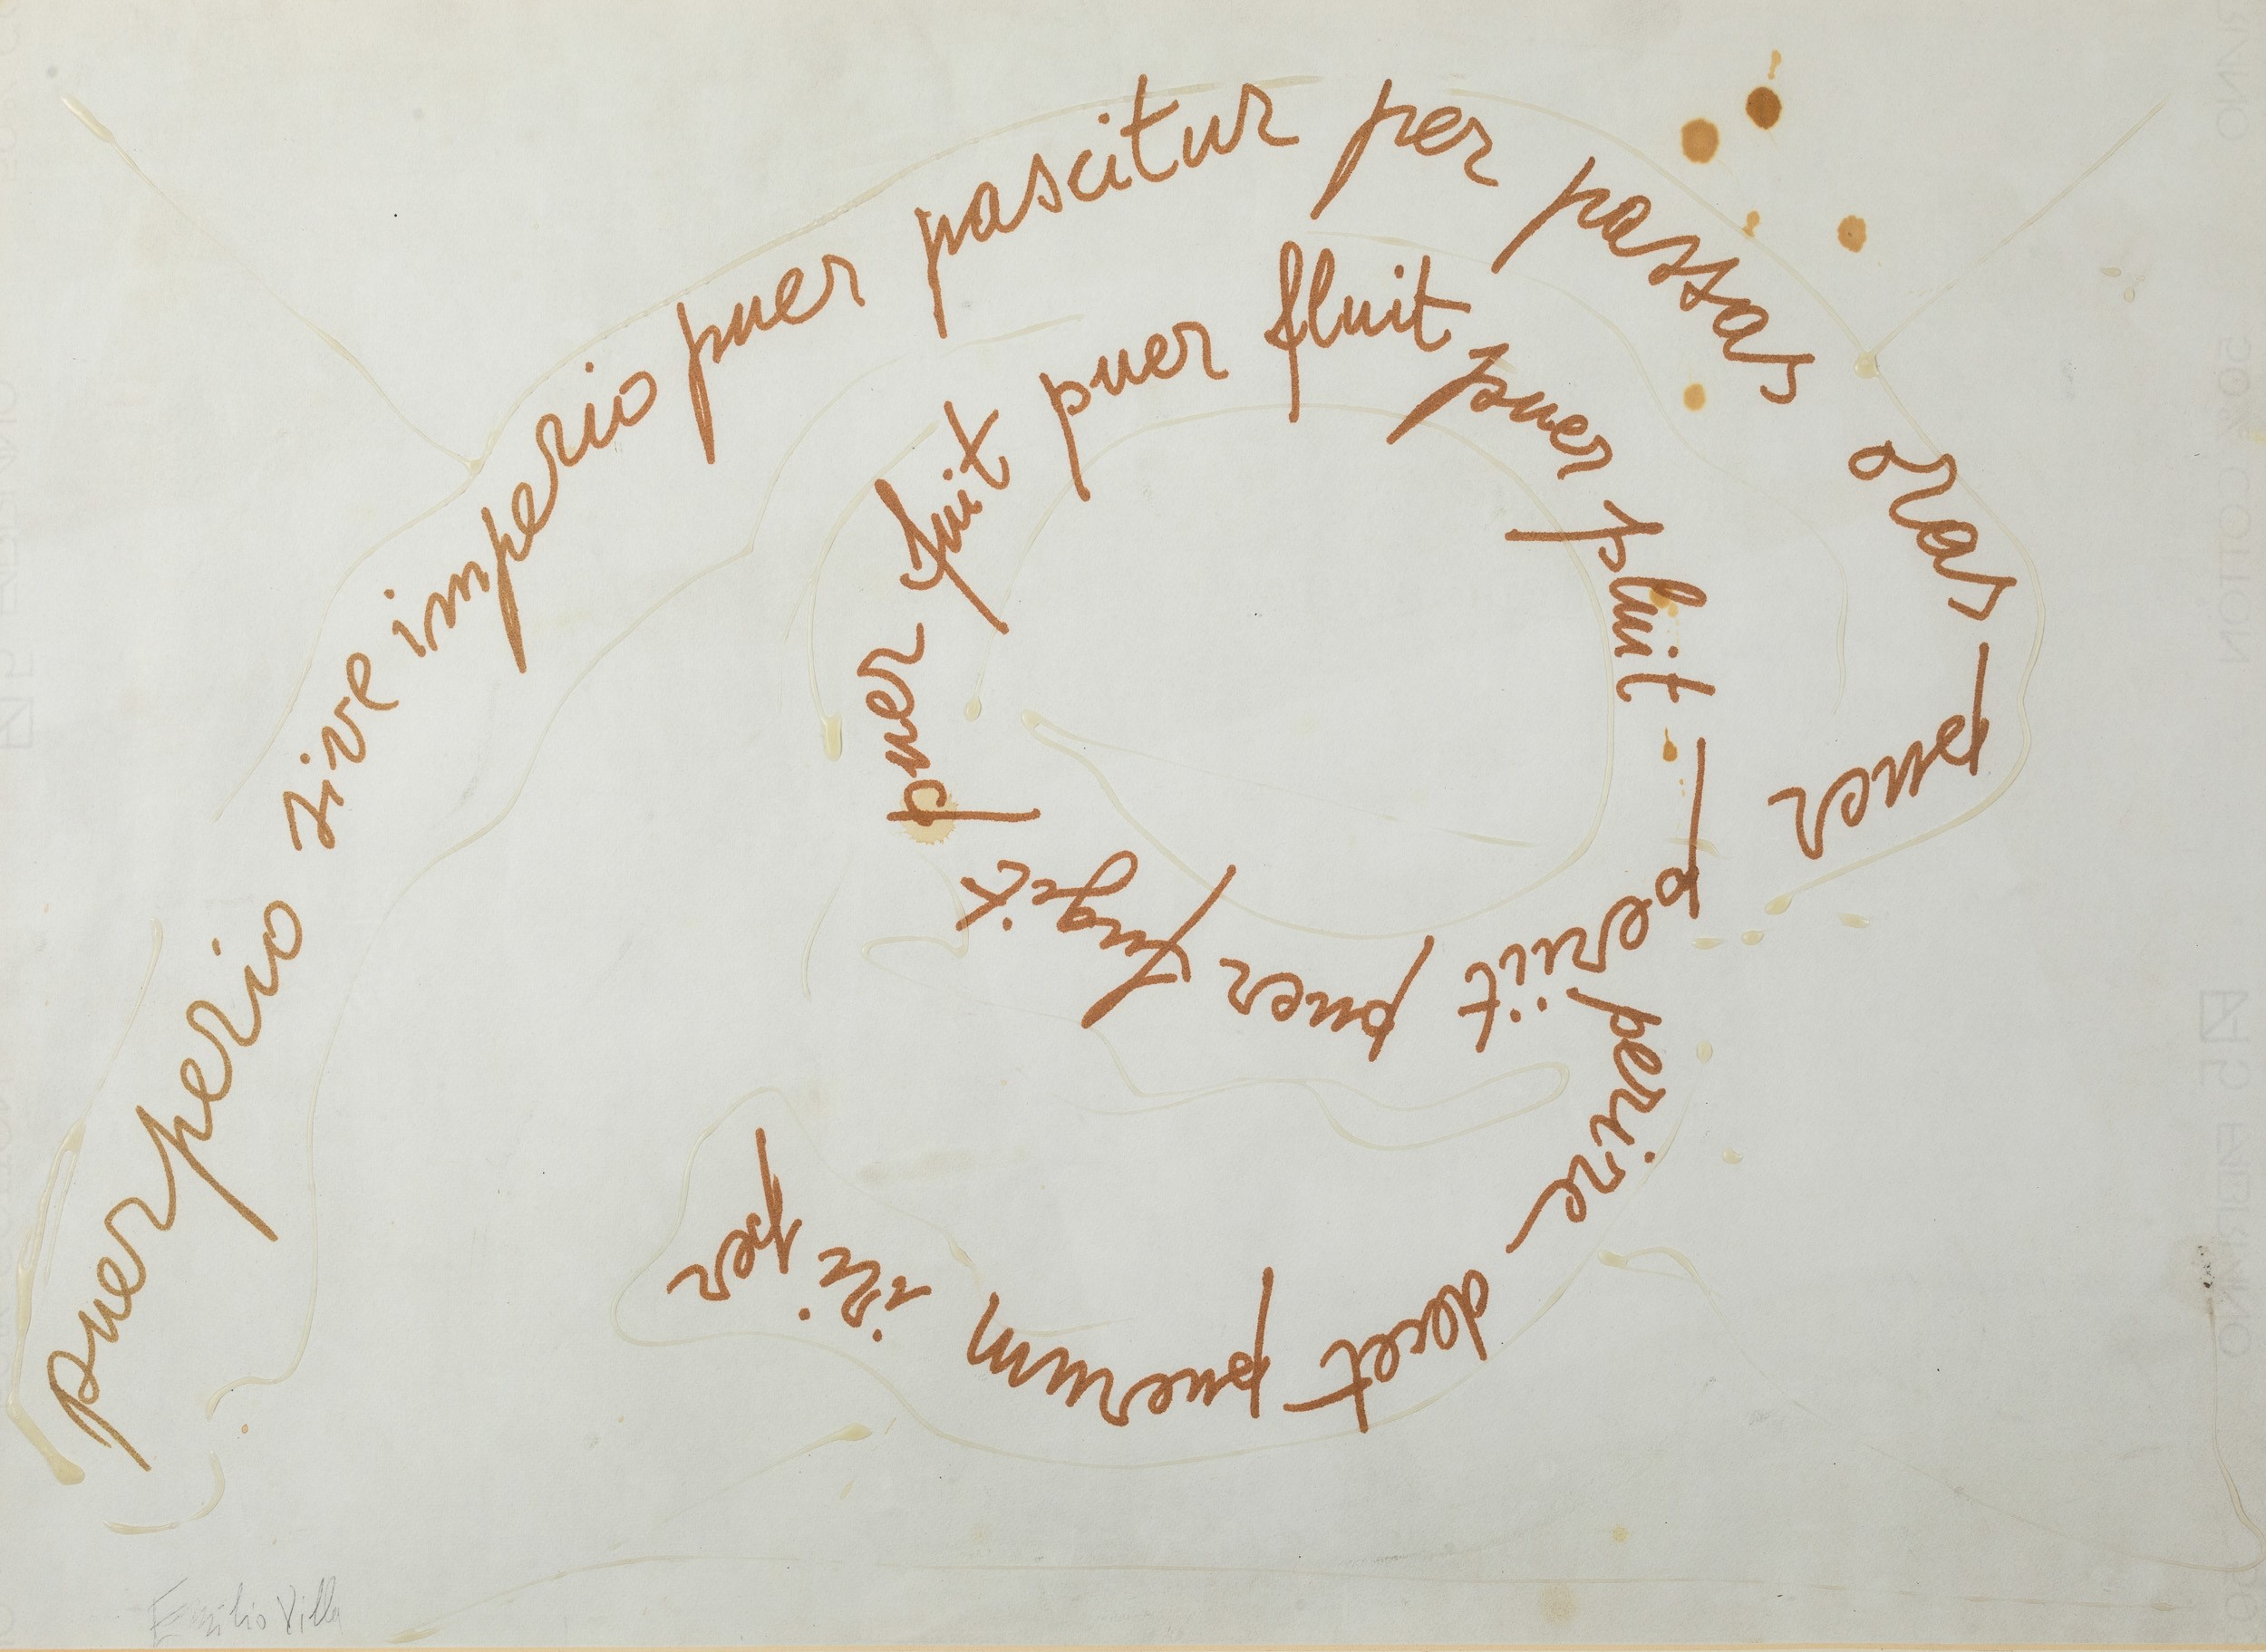 puerperio sive imperio puer pascitur per passas oras puer
puer fuit puer fluit puer pluit periit puer fugit
perire decet puerum per
Emilio Villa